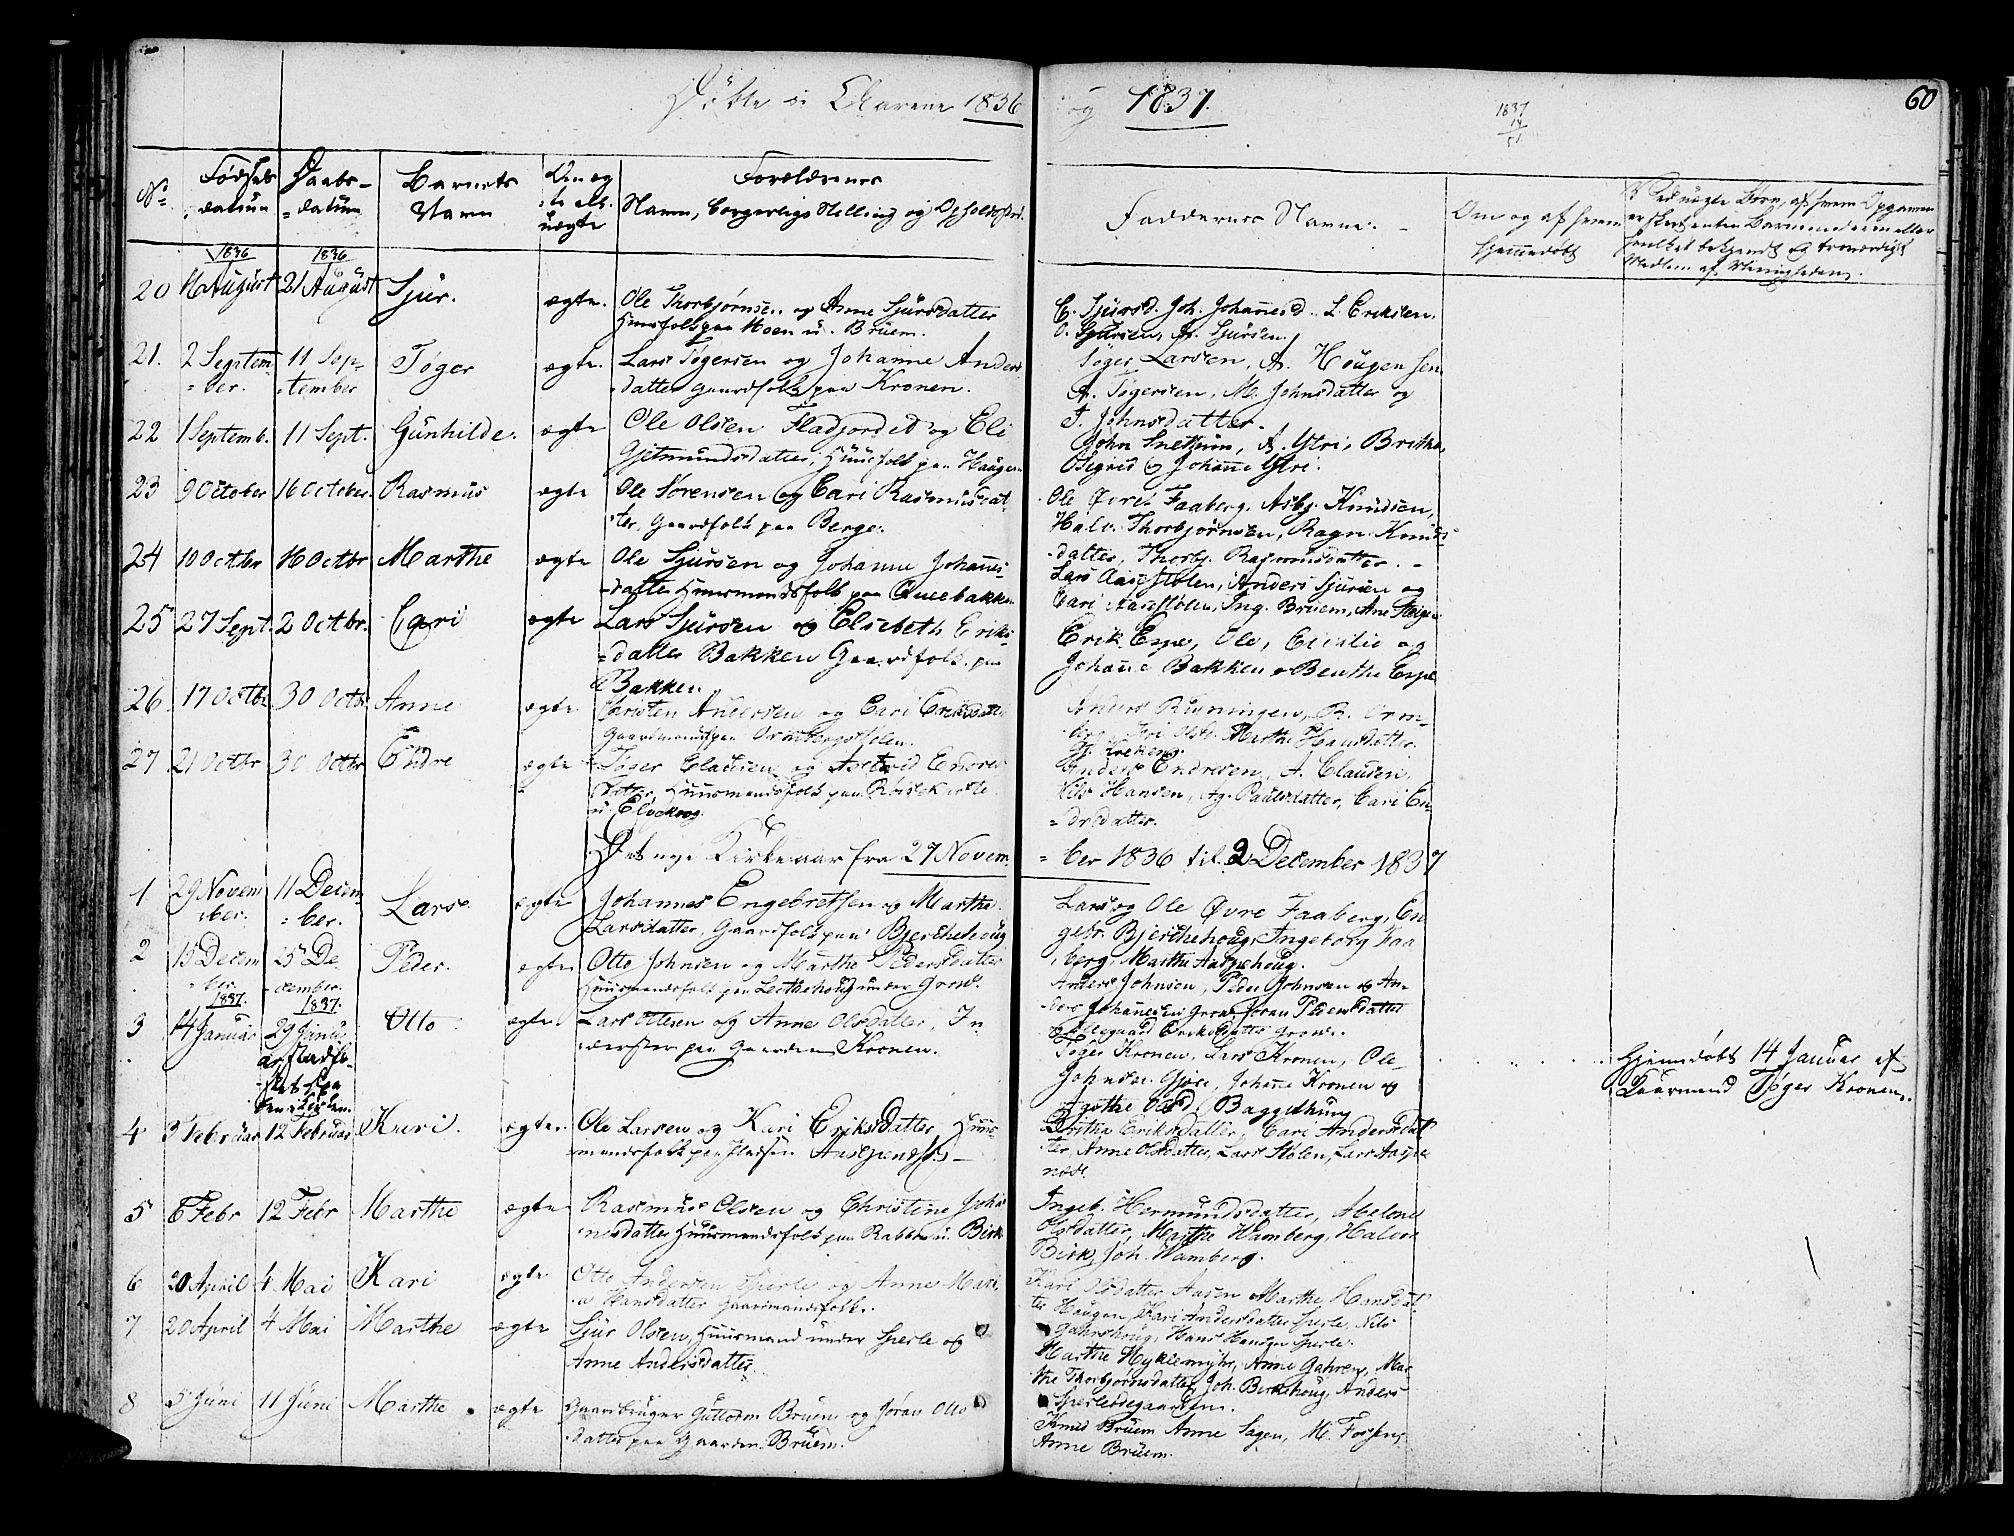 Døbte i Aarene 1836 og 1837.
60
1837
14
51
No
Fødsels datum
Daabs-datum
Barnets Navn
Om ægte ell. uægte
Forældrenes Navne, borgerlige Stilling og Opholdssted.
Faddernes Navne.
Om og af hvem hjemmedøbt
1836 1836
20 14 August 21 August Sjur. ægte. Ole Thorbjørnsen og Anne Sjursdatter
Huusfolk paa Moen u. Bruem.
E. Sjursd. Joh. Johannesd. L. Eriksen.
O. Sjursen, A. Sjursen.
21. 2 Septem- 11 Sep- Tøger ægte. Lars Tøgersen og Johanne Anders
=ber. =tember =datter Gaardfolk paa Kronen.
Tøger Larsen, A. Hougensen
A. Tøgersen, M. Johnsdatter og
J. Johnsdatter.
22 1 Septemb. 11 Sept. Gunhilde. ægte Ole Olsen Fladjordet og Eli
Gjetmundsdatter, Huusfolk paa Haugen
John Snetum, A. Ytri, Britha,
Sigrid og Johanne Ytri.
23 9 October 16 October. Rasmus ægte Ole Sørensen og Cari Rasmusdat-
ter, Gaardfolk paa Berge.
Ole Øvre Faaberg, Asbj. Knudsen,
Halv. Thorbjørnsen, Ragn. Knuds-
datter, Thorbj. Rasmusdatter.
24 10 Octbr 16 Octbr Marthe ægte Ole Sjursen og Johanne Johannes-
=datter Huusmandsfolk paa Queebakken
Lars Aaspstølen, Anders Sjursen og
Cari Aaspstølen, Ing. Bruem, Ane
25 27 Sept. 2 Octbr. Cari ægte Lars Sjursen og Elsebeth Eriks-
=datter Bakken Gaardfolk paa
Bakken.
Erik Espe, Ole, Cicilie og
Johanne Bakken & Benthe Espe
26 17 Octbr 30 Octbr Anne ægte Christen Andersen og Cari Eriksdatter
Gaardmand paa Ormbergstølen.
Anders Rivningen, R. Orm-
berg, Marthe Hansdatter.
27 21 Octbr 30 Octbr Endre ægte Tøger Clausen og Astrid Endres
datter, Huusmandsfolk paa
u. Elvekrog.
Anders Endresen, A. Clausen,
Nils Hansen, Ag. Paulsdatter, Cari En-
=dresdatter.
Det nye Kirkeaar fra 27 Novem- =ber 1836 til 2 December 1837
1 29 Novem 11 Decem Lars. ægte Johannes Engebretsen og Marthe
=ber. =ber. Larsdatter, Gaardfolk paa Bjerkehoug
Lars og Ole Øvre Faaberg, En
gebr. Bjerkehoug, Ingeborg Faa
berg, Marthe Aaspehoug.
2 15 Decem 25 De Peder. ægte Otto Johnsen og Marthe Pedersdatter
ber. =cember. Huusmandsfolk paa Leethehoug under Grov.
Anders Johnsen, Peder Johnsen og An-
ders Johannesen Grov, Joran Pedersdatter
og Allegaard Eriksdatter Grov.
1837. 1837.
3 14 Januar 29 Janu- Otto. ægte. Lars Ottesen og Anne Olsdatter, In
ar stadfæ-
stet paa
derster paa Gaarden Kronen.
Tøger Kronen, Lars Kronen, Ole
Johnsen Gjøri, Johanne Kronen og
Agothe Olsd. Baggethun
Hjemdøbt 14 Januar af
Laurmand Tøger Kronen.
4 3 Februar 12 Februar Kari. ægte. Ole Larsen og Kari Eriksdatter Huus
mandsfolk paa Pladsen
Britha Eriksdatter, Cari Andersdat
ter, Anne Olsdatter, Lars Stølen, Lars Aaspe
næs.
5 6 Febr 12 Febr Marthe ægte Rasmus Olsen og Christine Johan
nesdatter Huusmandsfolk paa Rabben u. Birk
Ingeb. Hermundsdatter, Helene
Olsdatter, Marthe Wamberg, Halvor
Birk, Joh. Wamberg.
6 20 April 4 Mai Kari ægte Otto Andersen Sperle og Anne Mari
a Hansdatter Gaardmandsfolk.
Kari Olsdatter Aasen Marthe Hansdat
ter Haugen, Kari Andersdatter Sperle, Nils
Gahrehoug, Hans Hansen Sperle.
7 20 April 4 Mai Marthe ægte Sjur Olsen, Huusmand under Sperle og
Anne Andersdatter.
Marthe Myklemyhr, Anne Gahren, Mar
the Thorbjørnsdatter, Joh. Birkehoug, Anders
Sperledsgaarden.
8 5 Juni 11 Juni Marthe. ægte Gaardbruger Guttorm Bruem og Joran Otto
datter paa Gaarden Bruem.
Knud Bruem Anne Sagen, M. Fossen,
Anne Bruem.